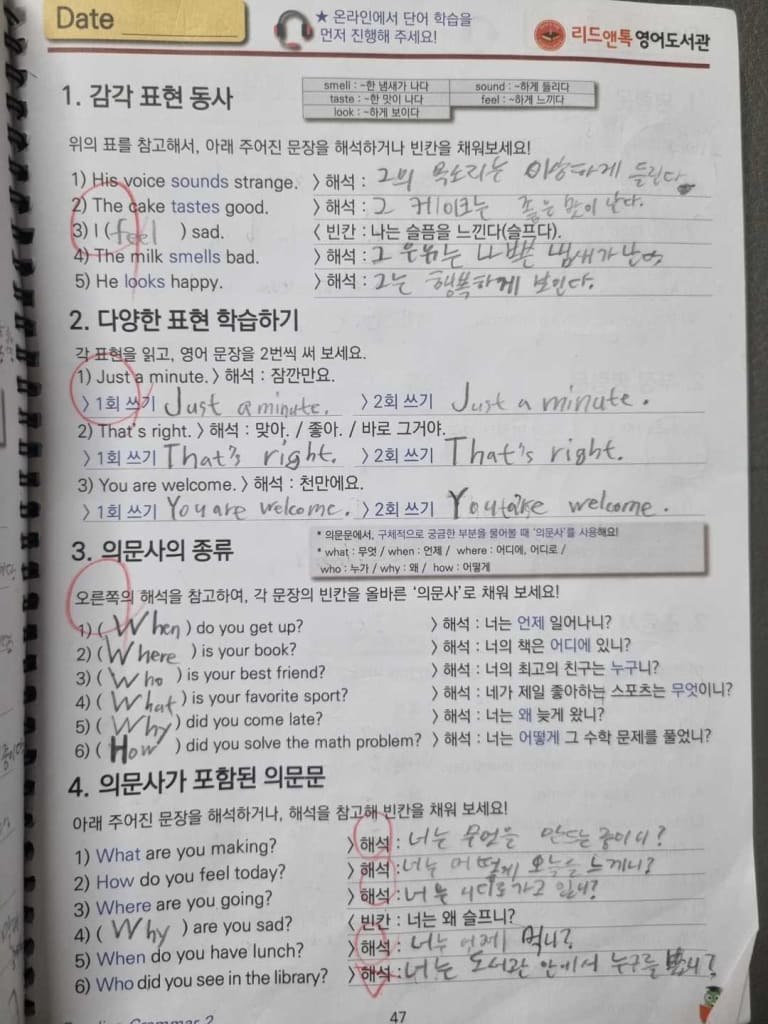 Date
★ 온라인에서 단어 학습을
먼저 진행해 주세요!
리드앤톡 영어도서관
1. 감각 표현 동사
smell : ~한 냄새가 나다 sound : ~하게 들리다
taste : ~한 맛이 나다 feel : ~하게 느끼다
look : ~하게 보이다
위의 표를 참고해서, 아래 주어진 문장을 해석하거나 빈칸을 채워보세요!
1) His voice sounds strange. 〉해석 : 그의 목소리는 이상하게 들린다.
2) The cake tastes good. 〉해석 : 그 케이크는 좋은 맛이 난다.
3) I ( feel ) sad. 〈 빈칸 : 나는 슬픔을 느낀다(슬프다).
4) The milk smells bad. 〉해석 : 그 우유는 나쁜 냄새가 난다
5) He looks happy. 〉해석 : 그는 행복하게 보인다.
2. 다양한 표현 학습하기
각 표현을 읽고, 영어 문장을 2번씩 써 보세요.
1) Just a minute. 〉해석 : 잠깐만요.
〉1회 쓰기 Just a minute. 〉2회 쓰기 Just a minute.
2) That's right. 〉해석 : 맞아. / 좋아. / 바로 그거야.
〉1회 쓰기 That's right. 〉2회 쓰기 That's right.
3) You are welcome. 〉해석 : 천만에요.
〉1회 쓰기 You are welcome. 〉2회 쓰기 You are welcome.
3. 의문사의 종류
* 의문문에서, 구체적으로 궁금한 부분을 물어볼 때 '의문사'를 사용해요!
* what : 무엇 / when : 언제 / where : 어디에, 어디로 /
who : 누가 / why : 왜 / how : 어떻게
오른쪽의 해석을 참고하여, 각 문장의 빈칸을 올바른 '의문사'로 채워 보세요!
1) ( When ) do you get up? 〉해석 : 너는 언제 일어나니?
2) ( Where ) is your book? 〉해석 : 너의 책은 어디에 있니?
3) ( Who ) is your best friend? 〉해석 : 너의 최고의 친구는 누구니?
4) ( What ) is your favorite sport? 〉해석 : 네가 제일 좋아하는 스포츠는 무엇이니?
5) ( Why ) did you come late? 〉해석 : 너는 왜 늦게 왔니?
6) ( How ) did you solve the math problem? 〉해석 : 너는 어떻게 그 수학 문제를 풀었니?
4. 의문사가 포함된 의문문
아래 주어진 문장을 해석하거나, 해석을 참고해 빈칸을 채워 보세요!
1) What are you making? 〉해석 : 너는 무엇을 만드는 중이니?
2) How do you feel today? 〉해석 : 너는 어떻게 오늘을 느끼니?
3) Where are you going? 〉해석 : 너는 어디로 가고 있니?
4) ( Why ) are you sad? 〈 빈칸 : 너는 왜 슬프니?
5) When do you have lunch? 〉해석 : 너는 언제 먹니?
6) Who did you see in the library? 〉해석 : 너는 도서관 안에서 누구를 봤니?
47